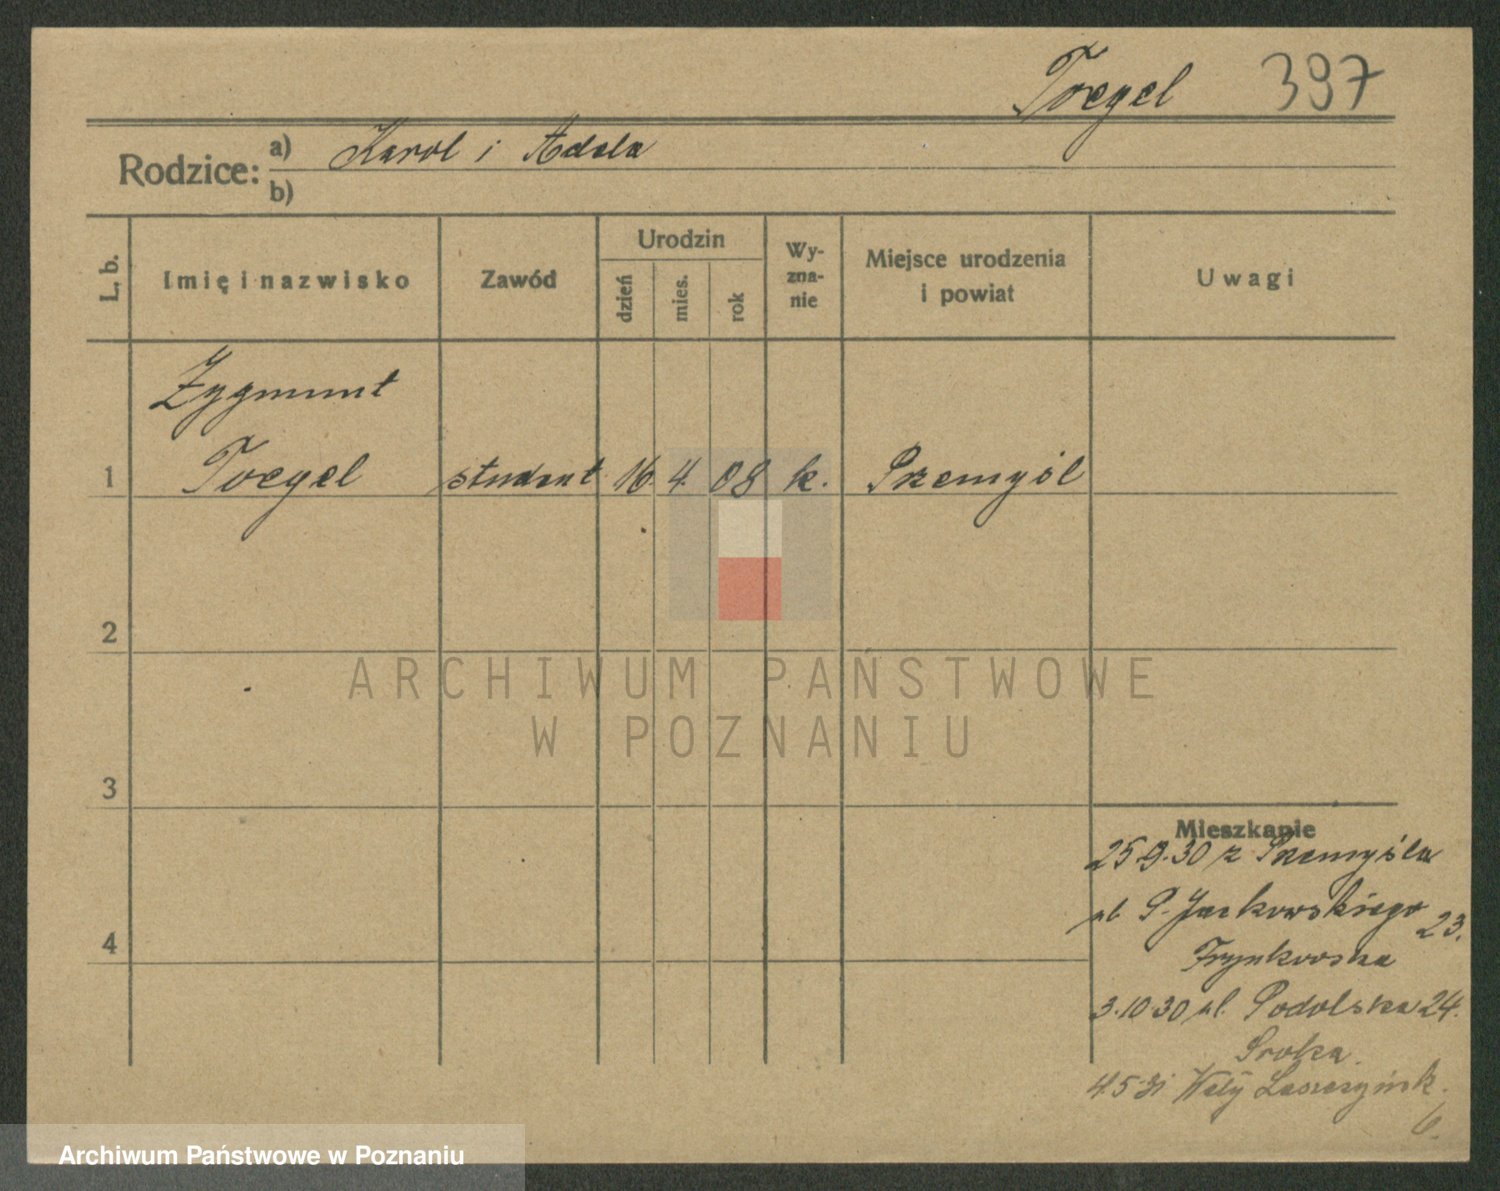 Toegel 397
Rodzice: a) Karol i Adela
b)
L. b. Imię i nazwisko Zawód Urodzin dzień mies. rok Wy-zna-nie Miejsce urodzenia i powiat Uwagi
Zygmunt
1 Toegel student 16. 4. 08 k. Przemyśl
2
ARCHIWUM PAŃSTWOWE
W POZNANIU
3
Mieszkanie
25.9.30 z Przemyśla
ul. P. Jackowskiego 23.
4
Frynkowska
3.10.30 ul. Podolska 24.
Sroka.
4.5.31 Wały Leszczyńsk.
6.
Archiwum Państwowe w Poznaniu